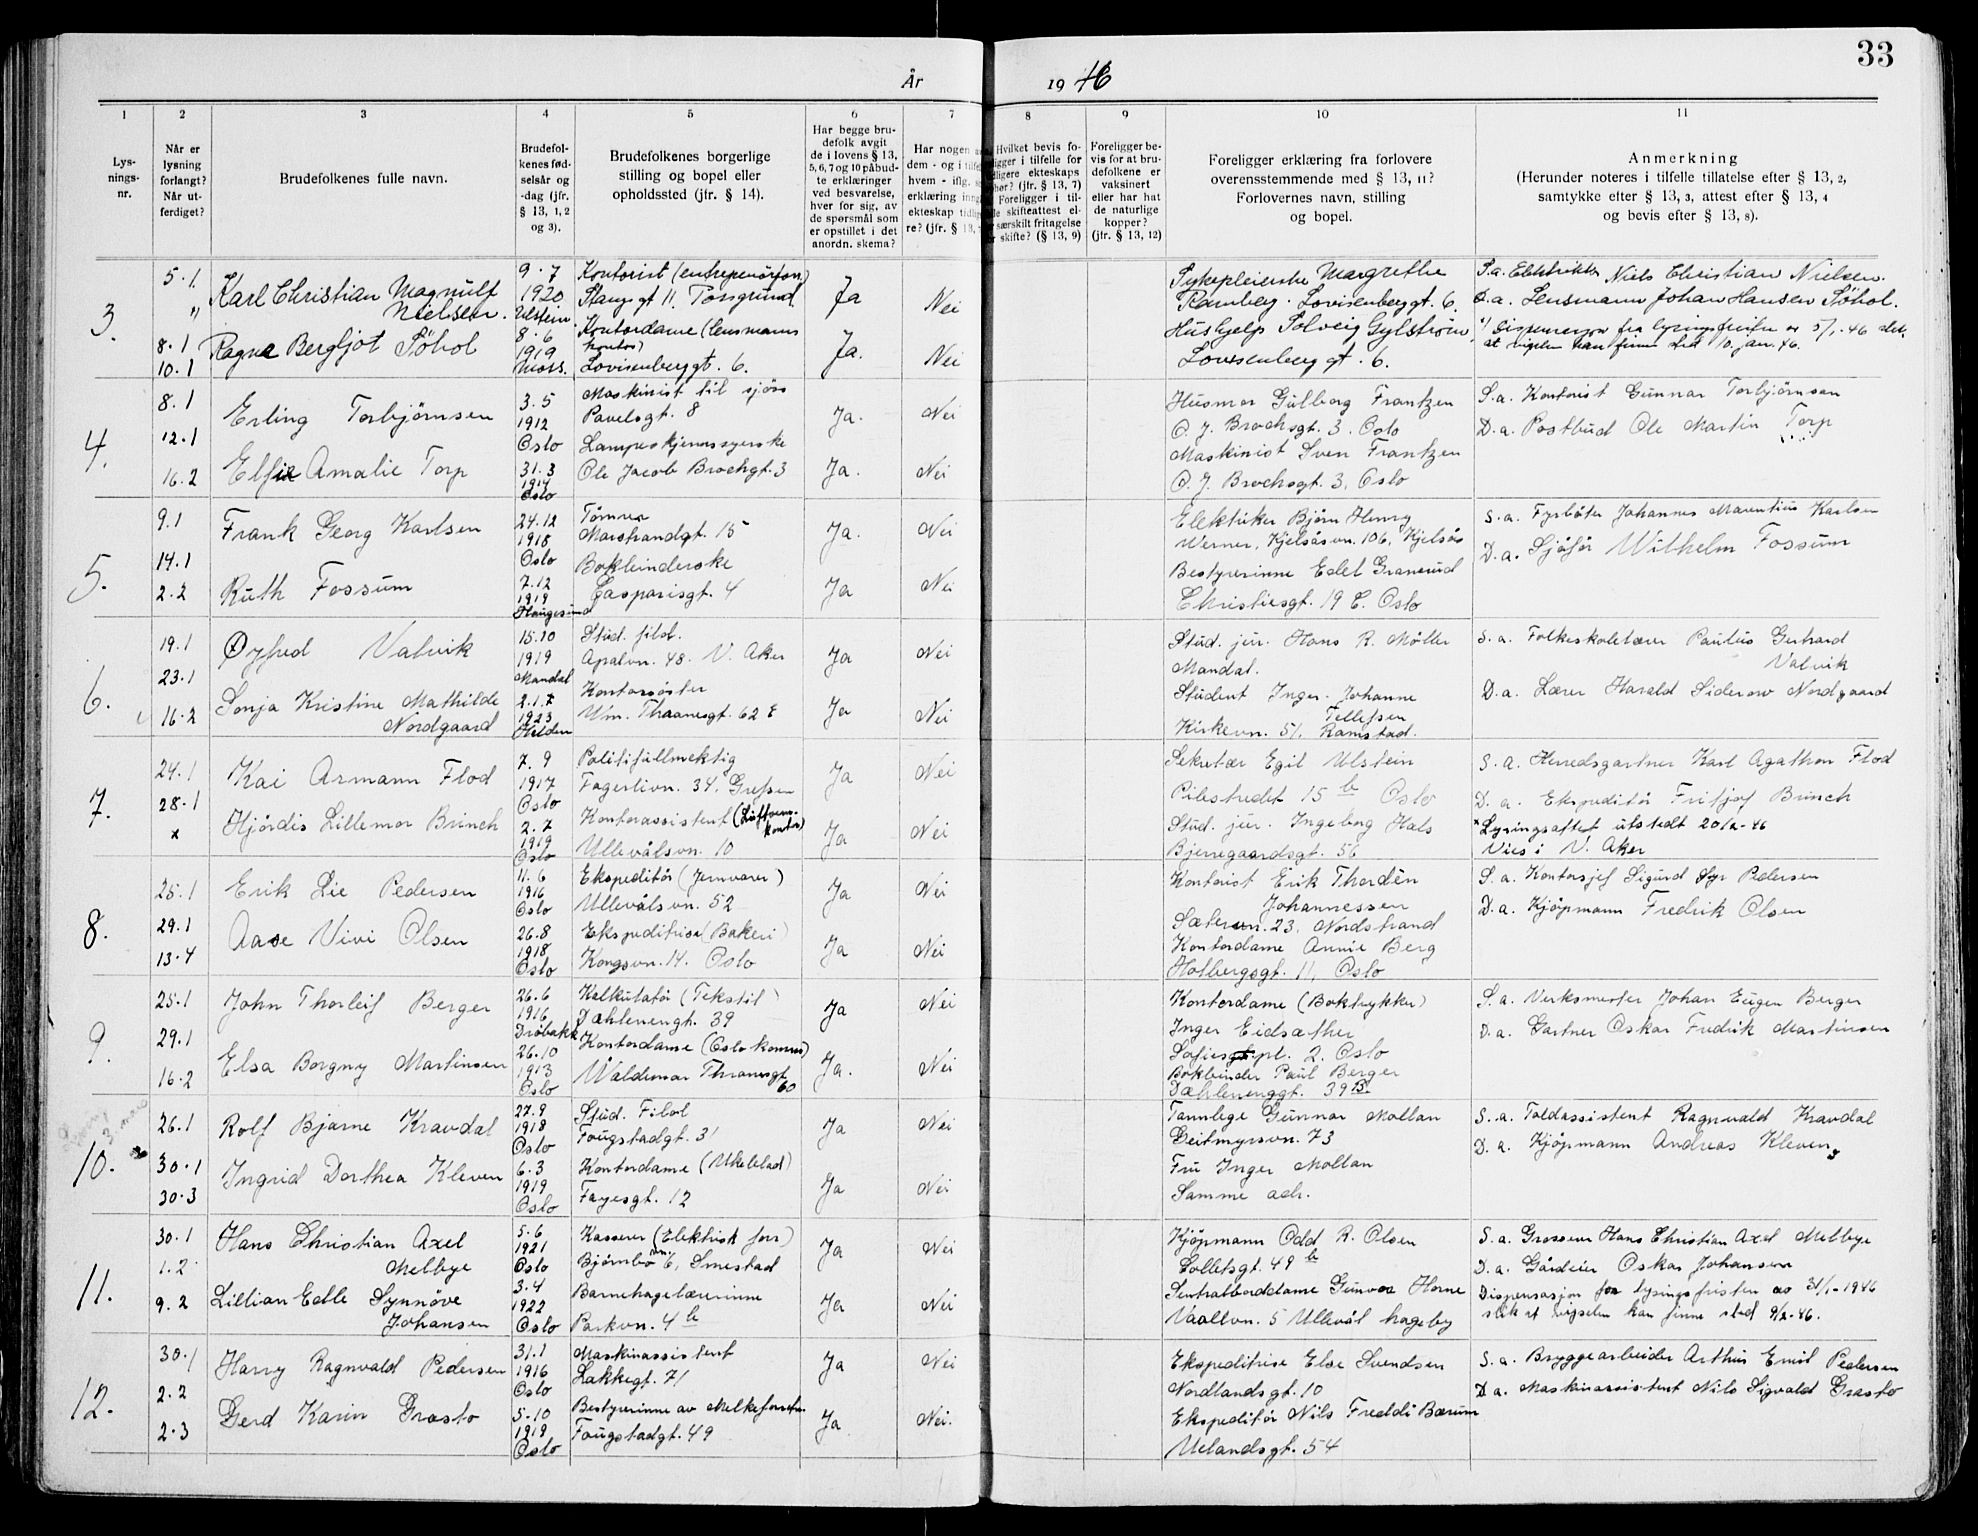 33
År 1946
1
2
3
4
5
6
7
8
9
10
11
Lys-
nings-
nr.
Når er
lysning
forlangt?
Når ut-
ferdiget?
Brudefolkenes fulle navn.
Brudefol-
kenes fød-
selsår og
-dag (jfr.
§ 13, 1, 2
og 3).
Brudefolkenes borgerlige
stilling og bopel eller
opholdssted (jfr. § 14).
Har begge bru-
defolk avgit
de i lovens § 13,
5, 6, 7 og 10 påbud-
te erklæringer
ved besvarelse,
hver for sig, av
de spørsmål som
er opstillet i det
anordn. skema?
Har nogen
dem - og i
hvem - iflg.
erklæring
ekteskap
re? (jfr. § 13,
Hvilket bevis fo-
ligger i tilfelle for
ligere ekteskaps
(jfr. § 13, 7)
Foreligger i til-
skifteattest el-
særskilt fritagelse
skifte? (§ 13, 9)
Foreligger be-
vis for at bru-
defolkene er
vaksinert
eller har hat
de naturlige
kopper?
(jfr. § 13, 12)
Foreligger erklæring fra forlovere
overensstemmende med § 13, 11?
Forlovernes navn, stilling
og bopel.
Anmerkning
(Herunder noteres i tilfelle tillatelse efter § 13, 2,
samtykke efter § 13, 3, attest efter § 13, 4
og bevis efter § 13, 8).
3.
5.1
"
8.1
10.1
Karl Christian Magnulf
Nielsen.
Ragna Bergljot Söhol
9.7
1920
Ulstein
8.6
1919
Moss.
Kontorist (entreprenörfon.)
Storgt 11. Porsgrund
Kontordame (lensmanns
kontor)
Lovisenberggt. 6.
Ja
Ja.
Nei
Nei
Sykepleierske Margrethe
Ramberg. Lovisenberggt. 6.
Hushjelp Solveig Gylstrøm,
Lovisenberggt. 6.
S.a. Elektriker Niels Christian Nielsen.
D.a. Lensmann Johan Hansen Söhol.
Dispensasjon fra lysingsfristen av 5/1-46 slik
at vigslen kan finne sted 10. jan. 46.
4.
8.1
12.1
16.2
Erling Torbjørnsen
Elfie Amalie Torp
3.5
1912
Oslo
31.3
1914
Oslo
Maskinist til sjøss
Pavelsgt. 8
Lampeskjermsyerske
Ole Jacob Brochgt. 3
Ja.
Ja.
Nei
Nei
Husmor Gulborg Frantzen
O. J. Brochsgt. 3. Oslo
Maskinist Sven Frantzen
O. J. Brochsgt. 3. Oslo
S.a. Kontorist Gunnar Torbjørnsen
D.a. Postbud Ole Martin Torp
5.
9.1
14.1
2.2
Frank Georg Karlsen
Ruth Fossum
24.12
1918
Oslo
7.12
1919
Haugesund
Tömrer
Marstrandgt. 15
Bokbinderske
Casparisgt. 4
Ja.
Ja
Nei
Nei
Elektriker Björn Henry
Werner, Kjelsåsvn. 106, Kjelsås
Bestyrerinne Edel Granerud
Christiesgt. 19 C. Oslo
S.a. Fyrbøter Johannes Marentius Karlsen
D.a. Sjåfør Wilhelm Fossum
6.
19.1
23.1
16.2
Øyfred Valvik
Sonja Kristine Mathilde
Nordgaard
15.10
1919
Mandal
2.1.7
1923
Halden
Stud. filol.
Apalvn. 48. V. Aker
Kontorsøster
Wm. Thranesgt. 62 E
Ja
Ja
Nei
Nei
Stud. jur. Hans R. Møller
Mandal.
Student Inger-Johanne
Tellefsen
Kirkevn. 51. Ramstad.
S.a. Folkeskolelærer Paulus Gerhard
Valvik
D.a. Lærer Harald Siderow Nordgaard
7.
24.1
28.1
x
Kai Armann Flod
Hjördis Lillemor Brinch
7.9
1917
Oslo
2.7
1919
Oslo
Politifullmektig
Fagerlivn. 34. Grefsen
Kontorassistent (Luftvern-
kontor)
Ullevålsvn. 10
Ja
Ja
Nei
Nei
Sekretær Egil Ulstein
Pilestredet 15 b Oslo
Stud. jur. Ingeborg Hals
Bjerregaardsgt. 56
S.a. Herredsgartner Karl Agathon Flod
D.a. Ekspeditör Fritjof Brinch
x Lysingsattest utstedt 20/2-46
Vies i V. Aker
8.
25.1
29.1
13.4
Erik Lie Pedersen
Aase Vivi Olsen
11.6
1916
Oslo
26.8
1918
Oslo
Ekspeditör (Jernvarer)
Ullevålsvn. 52
Ekspeditrise (Bakeri)
Kongsvn. 14. Oslo
Ja
Ja
Nei
Nei
Kontorist Erik Thordén
Johannessen
Sætervn. 23. Nordstrand
Kontordame Annie Berg
Holbergsgt. 11, Oslo
S.a. Kontorsjef Sigurd Syr Pedersen
D.a. Kjöpmann Fredrik Olsen
9.
25.1
29.1
16.2
John Thorleif Berger
Elsa Borgny Martinsen
26.6
1916
Drøbakk
26.10
1913
Oslo
Kalkulatör (Tekstil)
Dæhlenengt. 39
Kontordame (Oslo komm)
Waldemar Thranesgt
60
Ja
Ja.
Nei
Nei
Kontordame (Boktrykker)
Inger Eidsæther
Sofies pl. 2. Oslo
Bokbinder Paul Berger
Dæhlenenggt. 39 B.
S.a. Verksmester Johan Eugen Berger
D.a. Gartner Oskar Fredrik Martinsen
10.
26.1
30.1
30.3
Rolf Bjarne Kravdal
Ingrid Dorthea Kleven
27.9
1918
Oslo
6.3
1919
Oslo
Stud. Filol
Fougstadgt. 31
Kontordame (Ukeblad)
Fayesgt. 12
Ja
Ja
Nei
Nei
Tannlege Gunnar Mollan
Geitmyrsvn. 73
Fru Inger Mollan
Samme adr.
S.a. Tollassistent Ragnvald Kravdal
D.a. Kjöpmann Andreas Kleven
11.
30.1
1.2
9.2
Hans Christian Axel
Melbye
Lillian Edle Synnöve
Johansen
5.6
1921
Oslo
3.4
1922
Oslo
Kasserer (Elektrisk forr)
Bjørnbovn. 6, Smestad
Barnehagelærerinne
Parkvn. 4 b
Ja
Ja
Nei
Nei
Kjöpmann Odd R. Olsen
Colletsgt. 49 b
Sentralborddame Gunvor Horne
Vaallvn. 5 Ullevål hageby
S.a. Grosserer Hans Christian Axel Melbye
D.a. Gårdeier Oskar Johansen
Dispensasjon fra lysingsfristen av 31/1-1946
slik at vigselen kan finne sted 9/2-46.
12.
30.1
2.2
2.3
Harry Ragnvald Pedersen
Gerd Karin Grasto
31.1
1916
Oslo
5.10
1919
Oslo
Maskinassistent
Lakkegt. 71
Bestyrerinne av Melkeforretn.
Fougstadgt. 49
Ja
Ja.
Nei
Nei.
Ekspeditrise Else Svendsen
Nordlandsgt. 10
Ekspeditör Nils Freddi Bærum
Uelandsgt. 54
S.a. Bryggearbeider Arthur Emil Pedersen
D.a. Maskinassistent Nils Sigvald Grasto